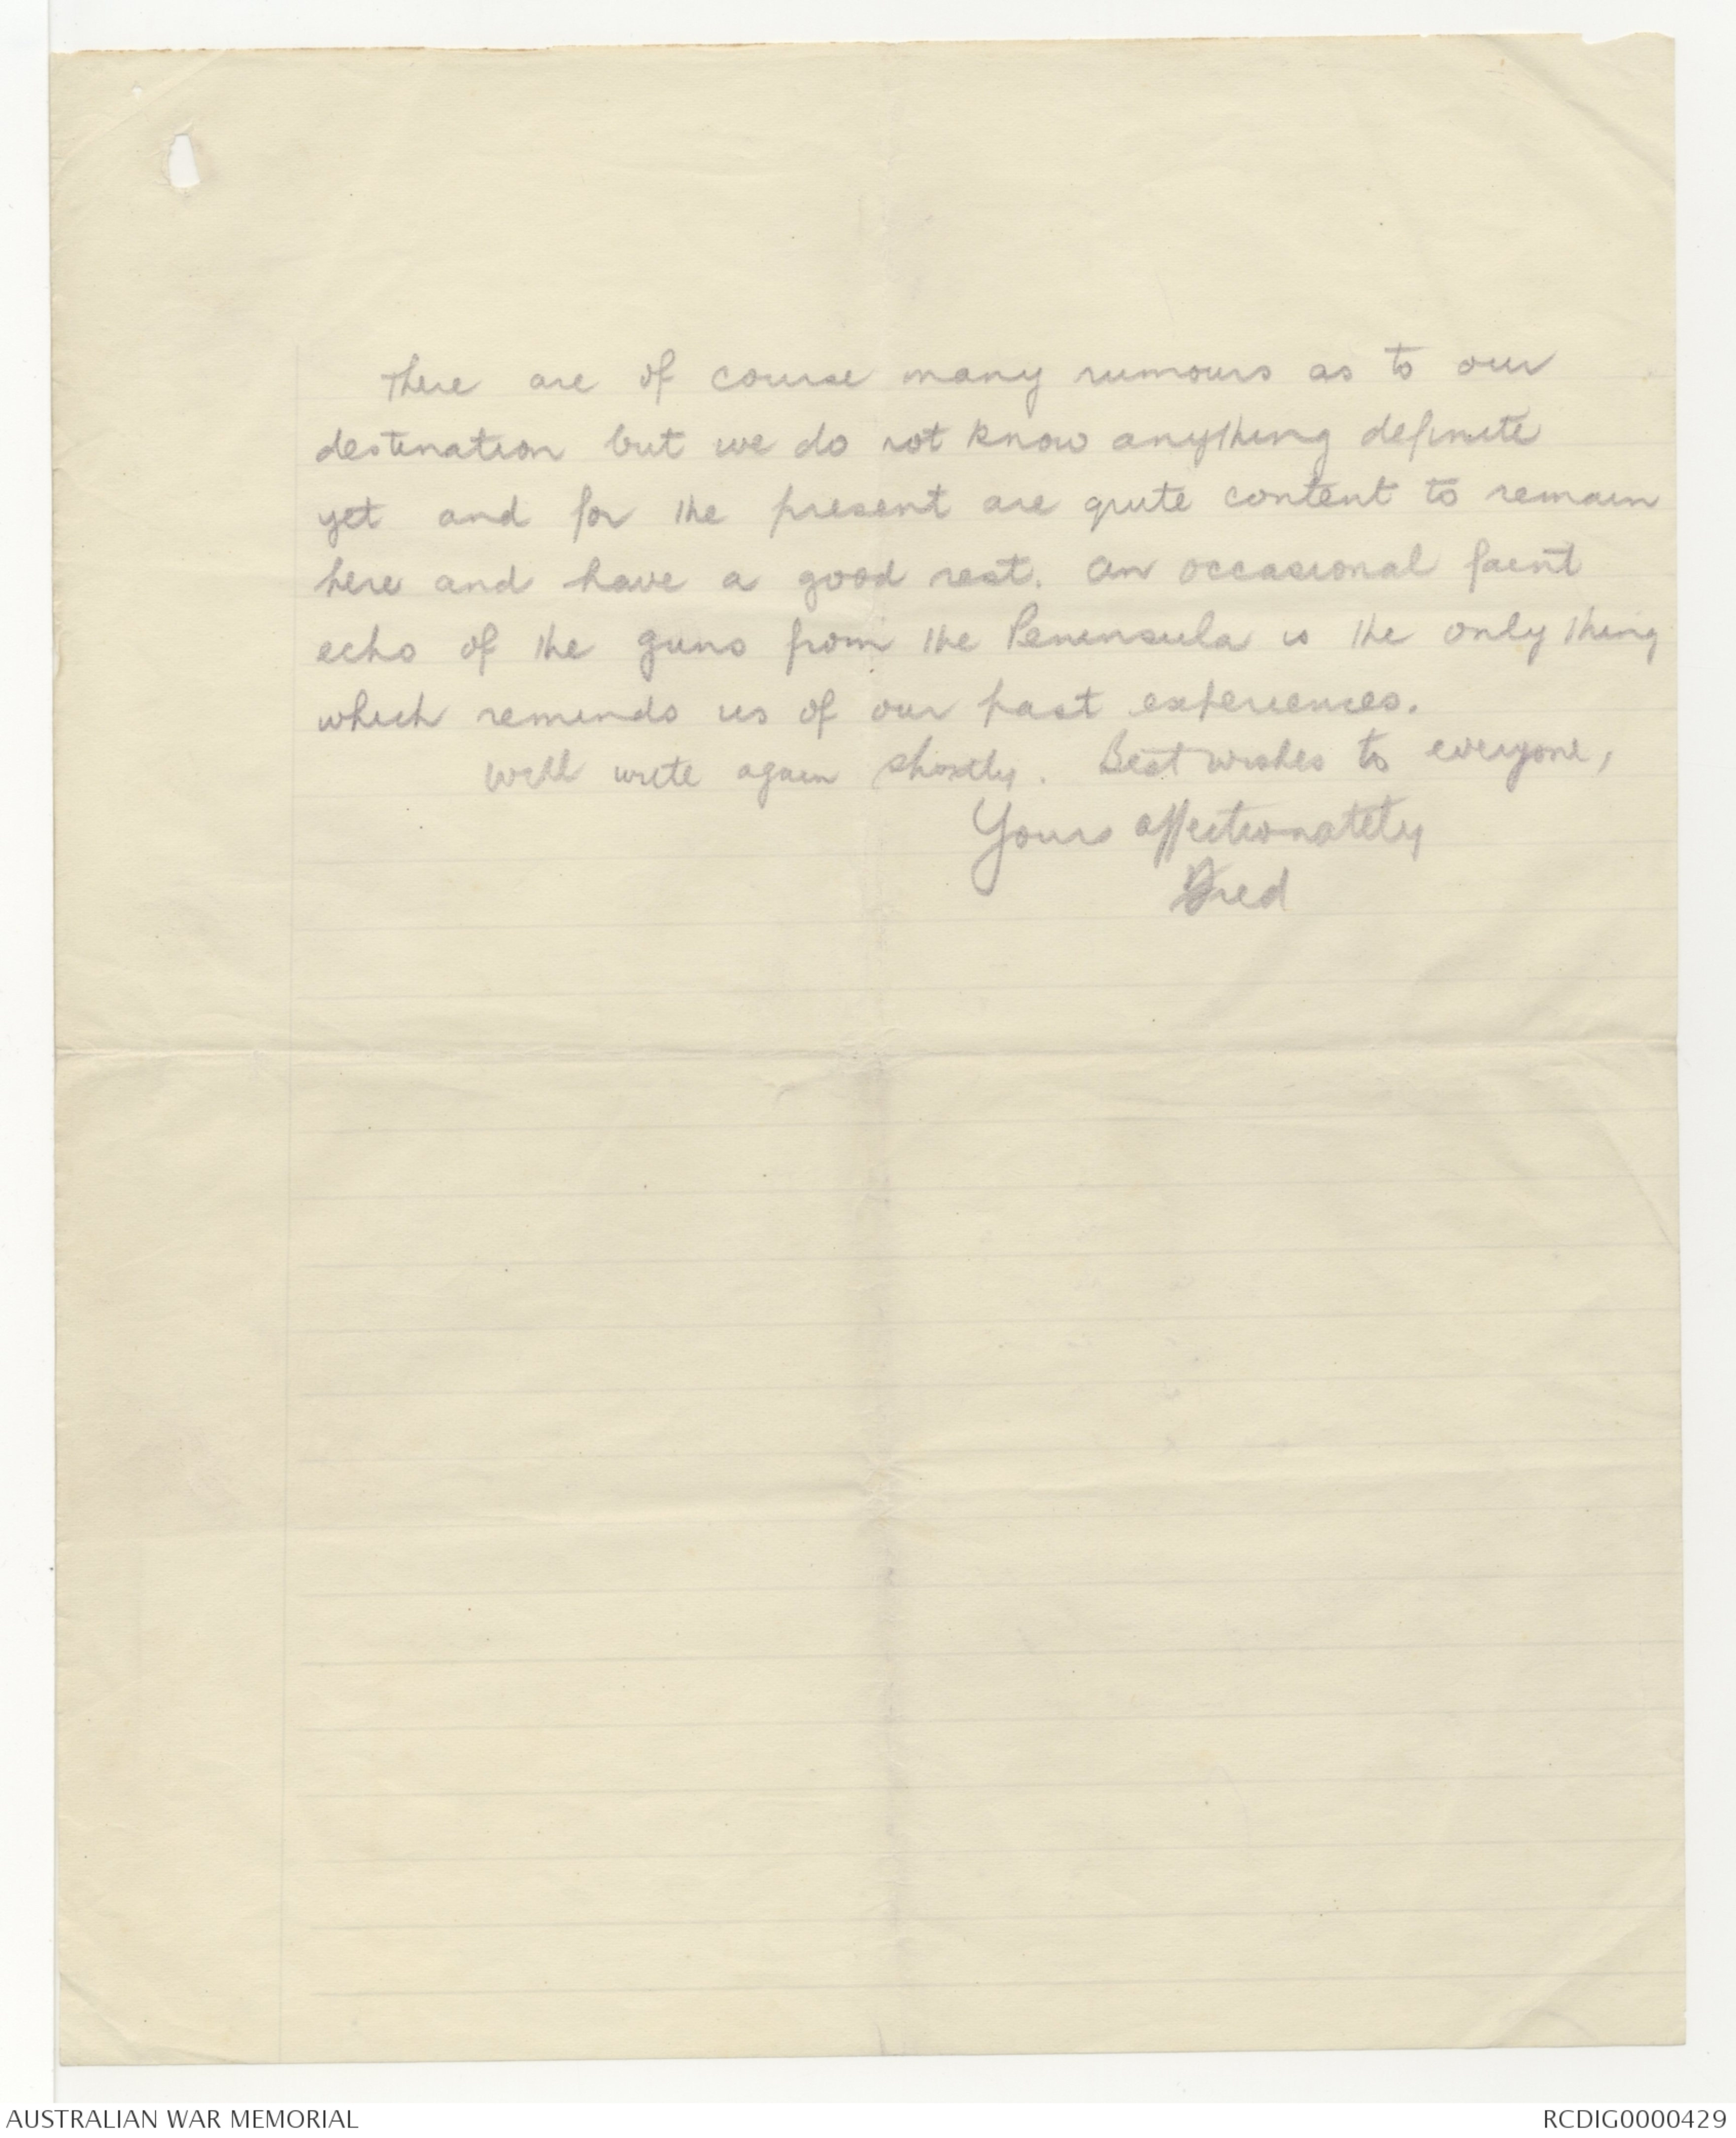 There are of course many rumours as to our
destination but we do not know anything definite
yet and for the present are quite content to remain
here and have a good rest. An occasional faint
echo of the guns from the Peninsula is the only thing
which reminds us of our past experiences.
Will write again shortly. Best wishes to everyone,
Yours affectionately
Fred
AUSTRALIAN WAR MEMORIAL
RCDIG0000429